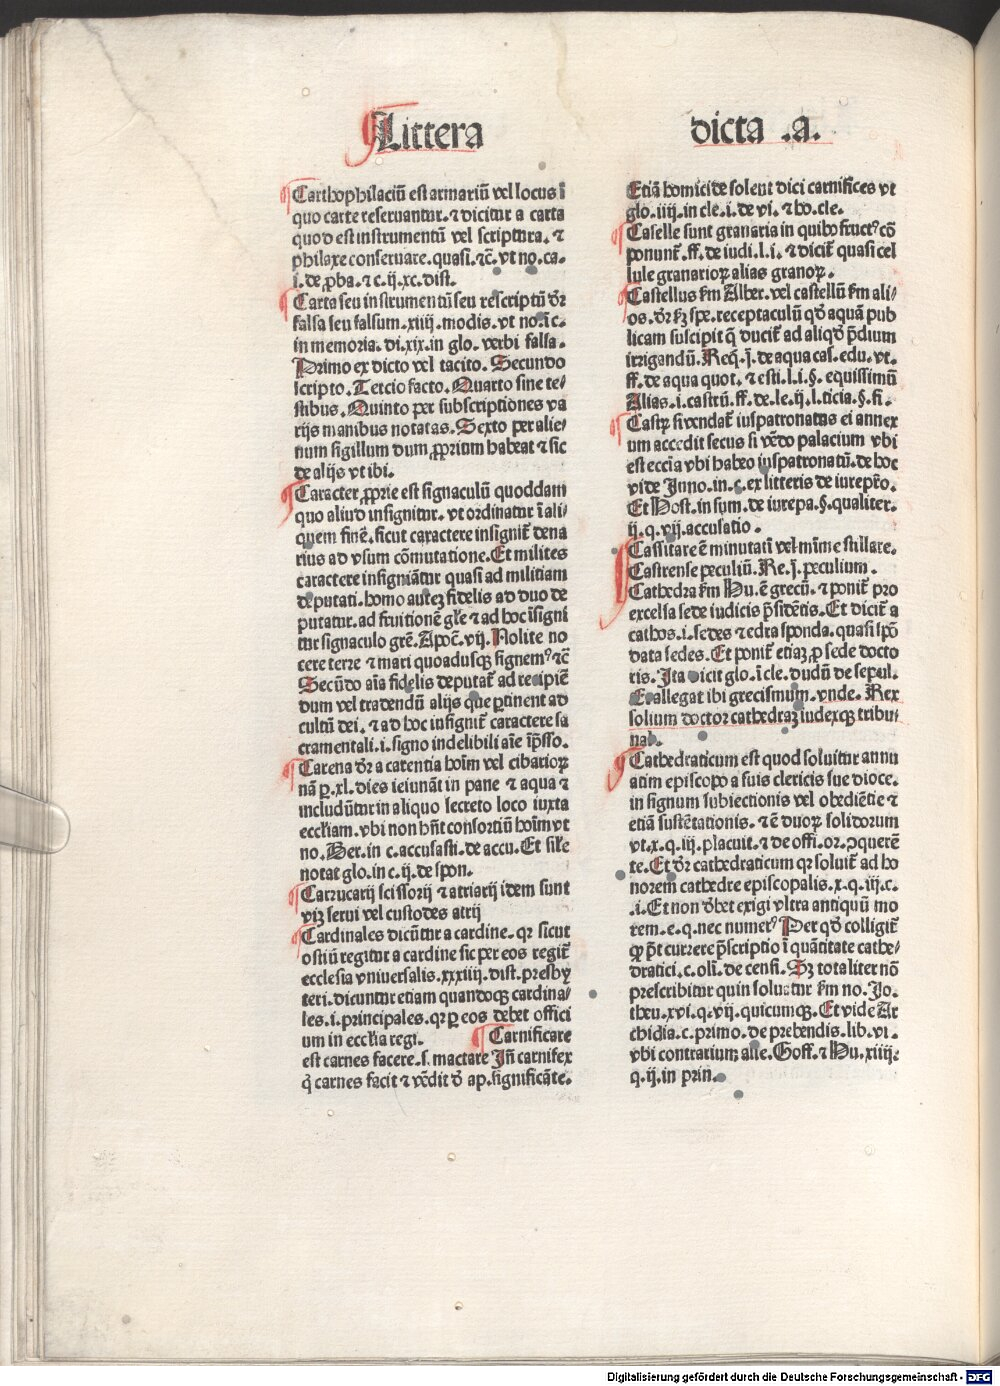 Littera
Carthophilaciū est armariū vel locus ī
quo carte reseruantur. ⁊ dicitur a carta
quod est instrumentū vel scriptura. ⁊
philaxe conseruare. quasi. ⁊c̄. vt no. ca.
i. de ꝓba. ⁊ c. ij. xc. dist.
Carta seu instrumentū seu rescriptū dr̄
falsa seu falsum. xiiij. modis. vt no. ī c.
in memoria. di. xix. in glo. verbi falsa.
Primo ex dicto vel tacito. Secundo
scripto. Tercio facto. Quarto sine te⸗
stibus. Quinto per subscriptiones va
rijs manibus notatas. Sexto per alie⸗
num sigillum dum ꝓprium habeat ⁊ sic
de alijs vt ibi.
Caracter ꝓprie est signaculū quoddam
quo aliud insignitur. vt ordinatur ī ali⸗
quem finē. sicut caractere insignit̄ dena
rius ad vsum cōmutatione. Et milites
caractere insigniātur quasi ad militiam
deputati. homo autez fidelis ad duo de
putatur. ad fruitionē gl̄e ⁊ ad hoc īsigni
tur signaculo gr̄e. Apoc̄. vij. Nolite no
cere terre ⁊ mari quoadusqꝫ signemꝰ ⁊c̄
Secūdo aīa fidelis deputat̄ ad recipiē
dum vel tradendū alijs que ꝑtinent ad
cultū dei. ⁊ ad hoc insignit̄ caractere sa
cramentali. i. signo indelibili aīe īp̄sso.
Carena dr̄ a carentia hoīm vel cibarioꝝ
nā ꝑ. xl. dies ieiunāt in pane ⁊ aqua ⁊
includūtur in aliquo secreto loco iuxta
eccl̄iam. vbi non hn̄t consortiū hoīm vt
no. Ber. in c. accusasti. de accu. Et sil̄e
notat glo. in c. ij. de spon.
Carrucarij scissorij ⁊ atriarij idem sunt
viꝫ serui vel custodes atrij
Cardinales dicūtur a cardine. qꝛ sicut
ostiū regitur a cardine sic per eos regit̄
ecclesia vniuersalis. xxxiiij. dist. presby
teri. dicuntur etiam quandoqꝫ cardina⸗
les. i. principales. qꝛ ꝑ eos debet offici
um in eccl̄ia regi. Carnificare
est carnes facere. s. mactare Jn̄ carnifex
q̇ carnes facit ⁊ vēdit d̄ ap. significāte.
dicta .a.
Etiā homicide solent dici carnifices vt
glo. iiij. in cle. i. de vi. ⁊ ho. cle.
Caselle sunt granaria in quibꝰ fructꝰ cō
ponunt̄. ff. de iudi. l. i. ⁊ dicit̄ quasi cel
lule granarioꝝ alias granoꝝ.
Castellus s̄m Alber. vel castellū s̄m ali⸗
os. dr̄ ẜꝫ spe. receptaculū qd̄ aquā pub
licam suscipit q̄ ducit̄ ad aliqd̄ p̄dium
irrigandū. Req̄. j̄. de aqua cas. edu. vt.
ff. de aqua quot. ⁊ esti. l. i. §. equissimū
Alias. i. castrū. ff. de le. ij. l. ticia. §. fi.
Castꝝ si vendat̄ iuspatronatus ei annex
um accedit secus si vēdo palacium vbi
est eccīa vbi habeo iuspatronatū. de hoc
vide Inno. in. c. ex litteris de iurepr̄o.
Et Host. in sum. de iurepa. §. qualiter.
ij. q. vij. accusatio.
Cassitare ē minutati vel mīme stillare.
Castrense peculiū. Re. j̄. peculium.
Cathedra s̄m Hu. ē grecū. ⁊ ponit̄ pro
excelsa sede iudicis p̄sidētis. Et dicit̄ a
cathos. i. sedes ⁊ edra sponda. quasi spō
data sedes. Et ponit̄ etiaꝫ ꝓ sede docto
ris. Ita dicit glo. ī cle. dudū de sepul.
Et allegat ibi grecismum. vnde. Rex
solium doctor cathedraꝫ iudexqꝫ tribu⸗
nal.
Cathedraticum est quod soluitur annu
atim episcopo a suis clericis sue dioce.
in signum subiectionis vel obediētie ⁊
etiā sustētationis. ⁊ ē duoꝝ solidorum
vt. x. q. iij. placuit. ⁊ de offi. or. ɔquerē
te. Et dr̄ cathedraticum qꝛ soluit̄ ad ho
norem cathedre episcopalis. x. q. iij. c.
.i. Et non dꝫbet exigi vltra antiquū mo
rem. e. q. nec numerꝰ Per qd̄ colligit̄
ꝙ p̄t currere p̄scriptio ī quātitate cathe⸗
dratici. c. oli. de censi. Sꝫ totaliter nō
prescribitur quin soluatur s̄m no. Jo.
theu. xvi. q. vij. quicumqꝫ. Et vide Ar
chidia. c. primo. de prebendis. lib. vi.
vbi contrarium alle. Goff. ⁊ Hu. xiiij.
q. ij. in prin.
Digitalisierung gefördert durch die Deutsche Forschungsgemeinschaft - DFG